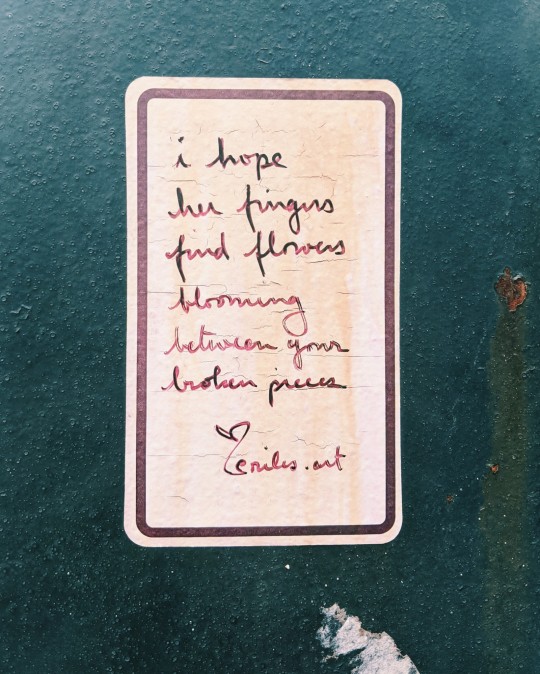 i hope
her fingers
find flowers
blooming
between your
broken pieces